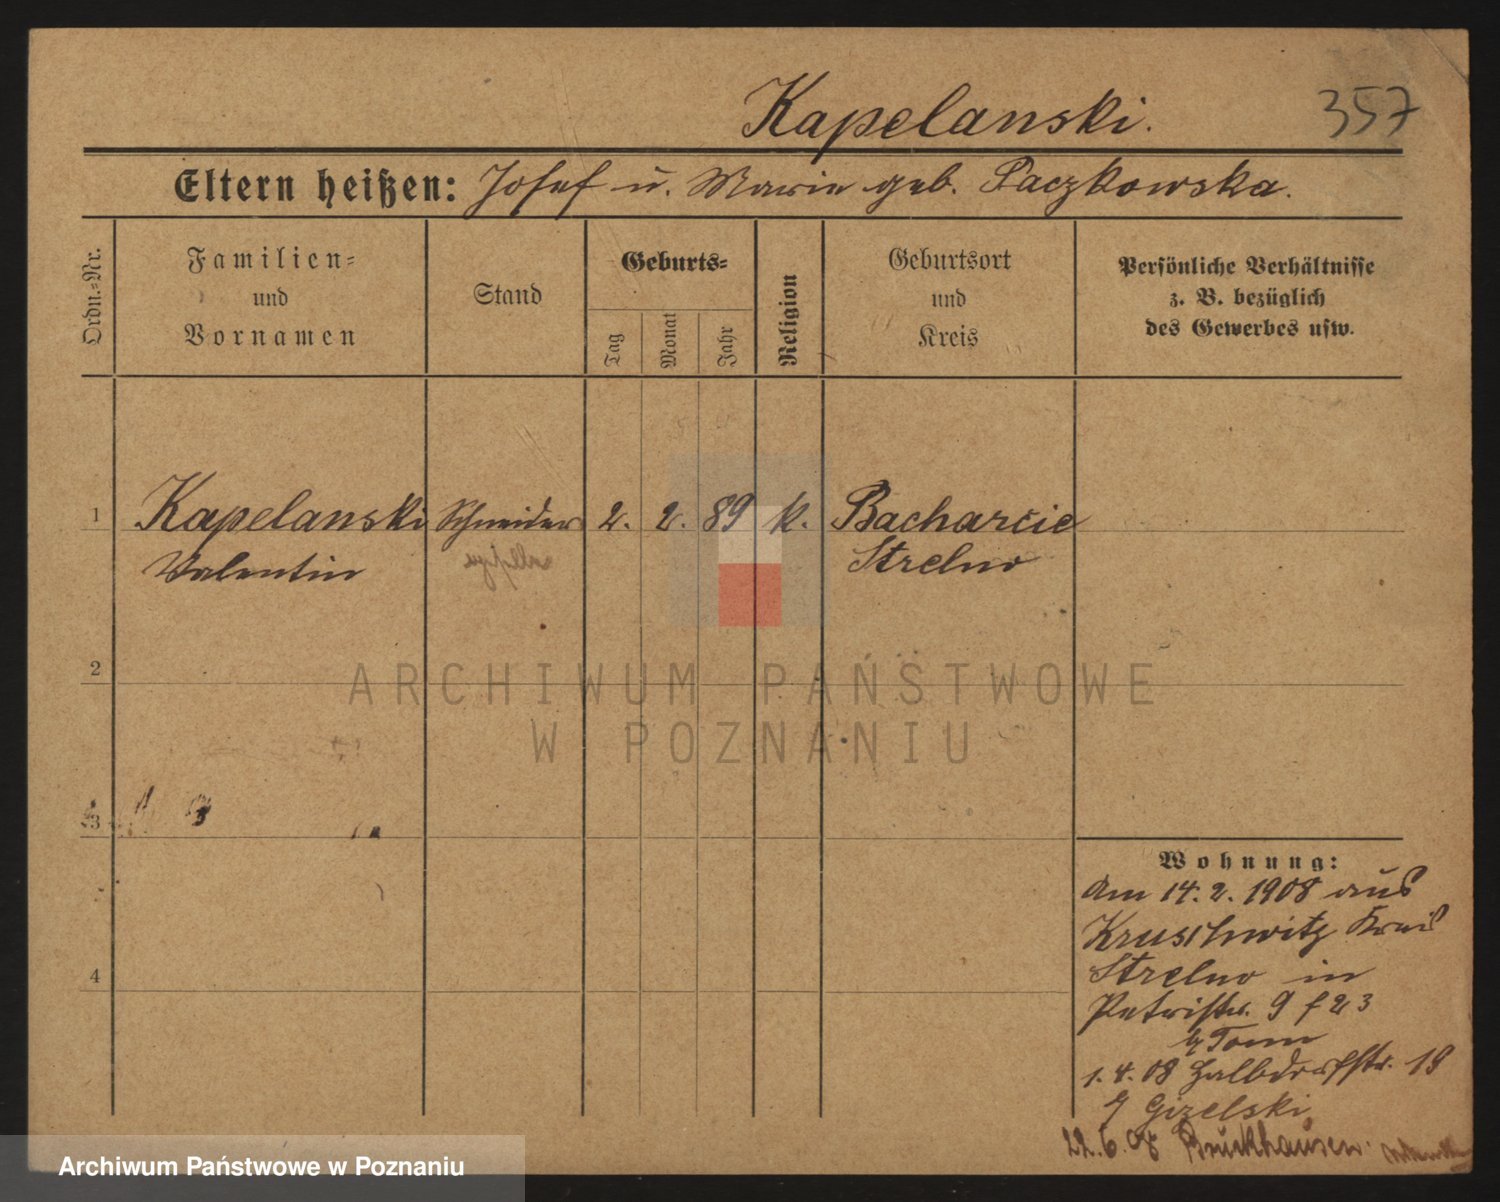 Kapelanski.
357
Eltern heißen: Josef u. Marie geb. Paczkowska.
Ordn.=Nr.
Familien=
und
Vornamen
Stand
Geburts=
Tag
Monat
Jahr
Religion
Geburtsort
und
Kreis
Persönliche Verhältnisse
z. B. bezüglich
des Gewerbes usw.
1 Kapelanski Schneider 2. 2. 89 k. Bacharcie
Valentin Strelno
2
3
4
Wohnung:
Am 14. 2. 1908 aus
Kruschwitz Kreis
Strelno in
Petristr. 9
b/ Tonn
1. 4. 08 Halbdorfstr. 18
Gizelski
22. 6. 08 Bruckhausen.
ARCHIWUM PAŃSTWOWE
W POZNANIU
Archiwum Państwowe w Poznaniu